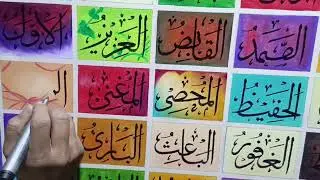 الصمد القابض العزيز الأول
الحفيظ المحصي المغني ال
الغفور الباعث البارئ